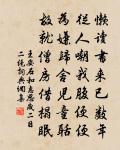 懶讀書來已數年
從人嘲我腹便便
為嫌歸舍兒童聒
故就僧房借榻眠
王安石和惠思歲二日
二絕詞典網集